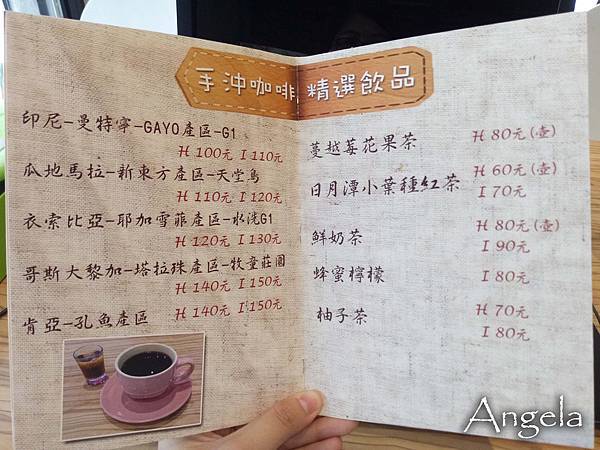 手沖咖啡
印尼-曼特寧-GAYO產區-G1
H 100元 I 110元
瓜地馬拉-新東方產區-天堂鳥
H 110元 I 120元
衣索比亞-耶加雪菲產區-水洗G1
H 120元 I 130元
哥斯大黎加-塔拉珠產區-牧童莊園
H 140元 I 150元
肯亞-孔魚產區
H 140元 I 150元
精選飲品
蔓越莓花果茶
H 80元(壺)
日月潭小葉種紅茶
H 60元(壺)
I 70元
鮮奶茶
H 80元(壺)
I 90元
蜂蜜檸檬
I 80元
柚子茶
H 70元
I 80元
Angela